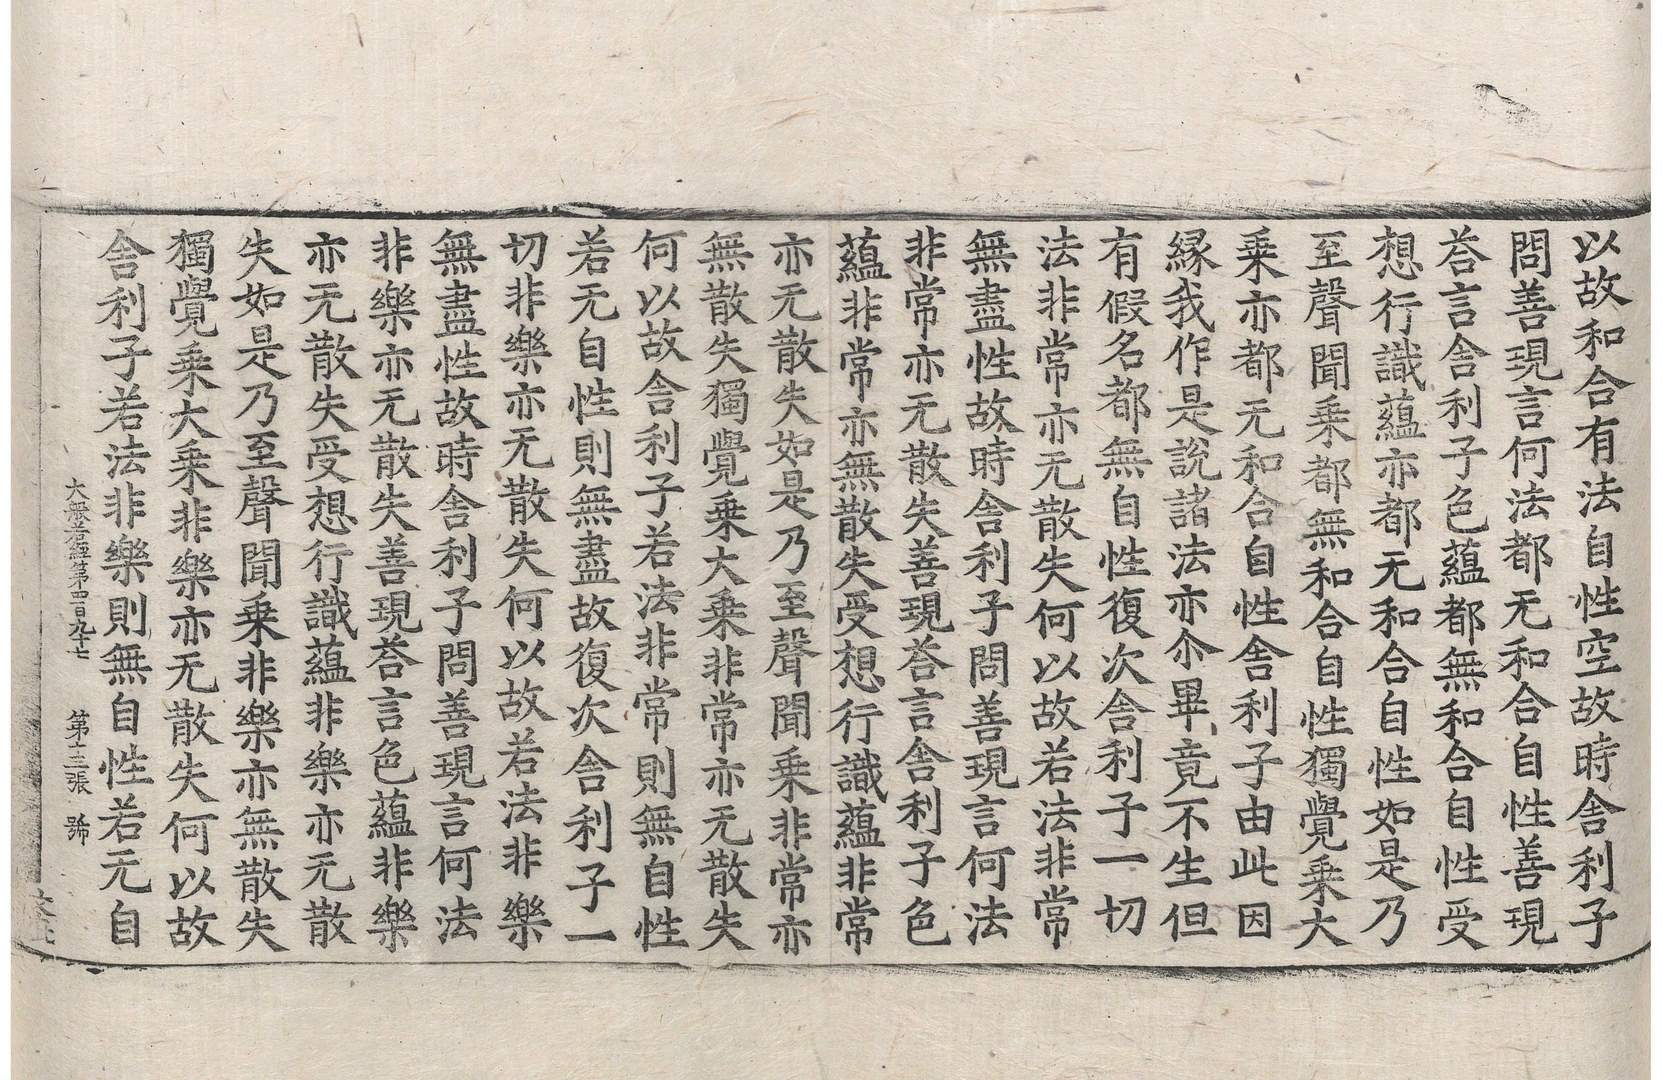 以故和合有法自性空故時舍利子
問善現言何法都无和合自性善現
荅言舍利子色蘊都無和合自性受
想行識蘊亦都无和合自性如是乃
至聲聞乗都無和合自性獨覺乗大
乗亦都元和合自性舍利子由此因
緣我作是說諸法亦尒畢竟不生但
有假名都無自性復次舍利子一切
法非常亦无散失何以故若法非常
無盡性故時舍利子問善現言何法
非常亦无散失善現荅言舍利子色
蘊非常亦無散失受想行識蘊非常
亦无散失如是乃至聲聞乗非常亦
無散失獨覺乗大乗非常亦无散失
何以故舍利子若法非常則無自性
若无自性則無盡故復次舍利子一
切非樂亦无散失何以故若法非樂
無盡性故時舍利子問善現言何法
非樂亦无散失善現荅言色蘊非樂
亦无散失受想行識蘊非樂亦无散
失如是乃至聲聞乗非樂亦無散失
獨覺乗大乗非樂亦无散失何以故
舍利子若法非樂則無自性若元自
大般若經第四百九十七 第十三張 號